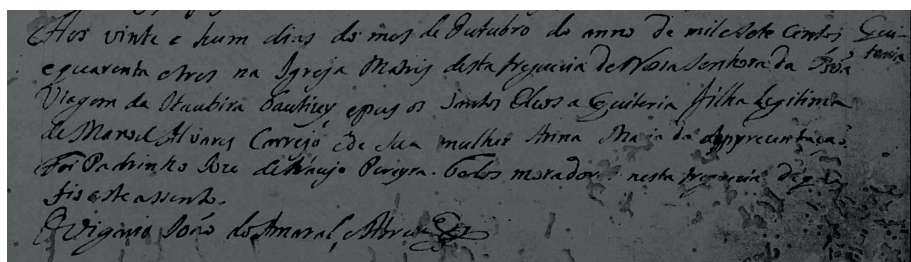 Aos vinte e hum dias do mes de Outubro do anno de mil e sete centos
e quarenta e tres na Igreja Matris desta freguezia de Nossa Senhora da Boa
Viagem da Itaubira bautizey e pus os Santos Oleos a Quiteria filha legitima
de Manoel Alvares Correjo e de sua mulher Anna Maria da Apprezentação
Foi Padrinho Joze de Araujo Pereyra. Todos moradores nesta freguezia de q
fis este assento.
O Vigario João do Amaral
Qui-
teria